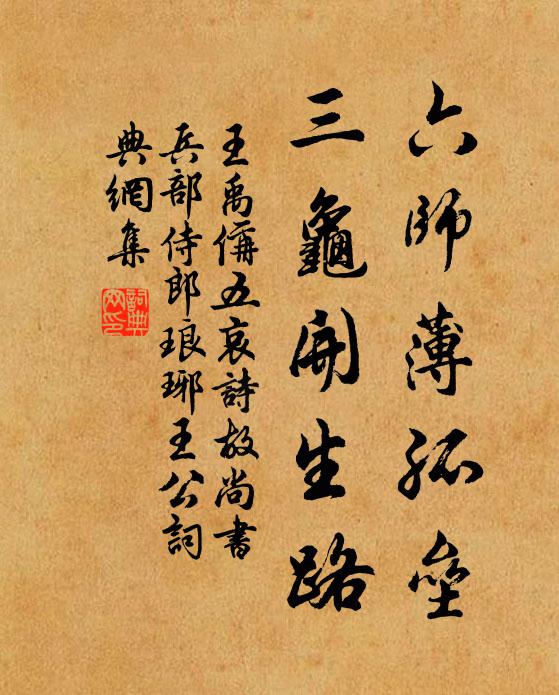 六師薄孤壘
三龜開生路
王禹偁五哀詩故尚書
兵部侍郎琅琊王公詞
典網集
詞典網印